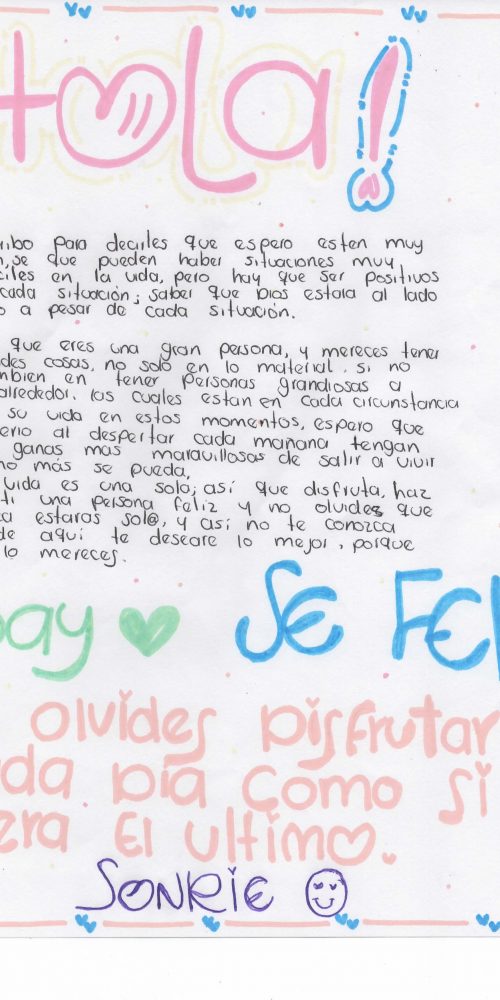 Hola!
ribo para decirles que espero esten muy
n, se que pueden haber situaciones muy
ciles en la vida, pero hay que ser positivos
cada situación; saber que Dios estara al lado
o a pesar de cada situación.
que eres una gran persona, y mereces tener
des cosas, no solo en lo material, si no
mbien en tener personas grandiosas a
alrededor. los cuales estan en cada circunstancia
su vida en estos momentos, espero que
erio al despertar cada mañana tengan
ganas mas maravillosas de salir a vivir
mo más se pueda,
vida es una sola; así que disfruta, haz
ti una persona feliz y no olvides que
ca estaras sol@, y así no te conozca
de aquí te deseare lo mejor, porque
lo mereces.
bay SE FEL
olvides Disfrutar
da Dia Como Si
era El ultimo.
SONRIE